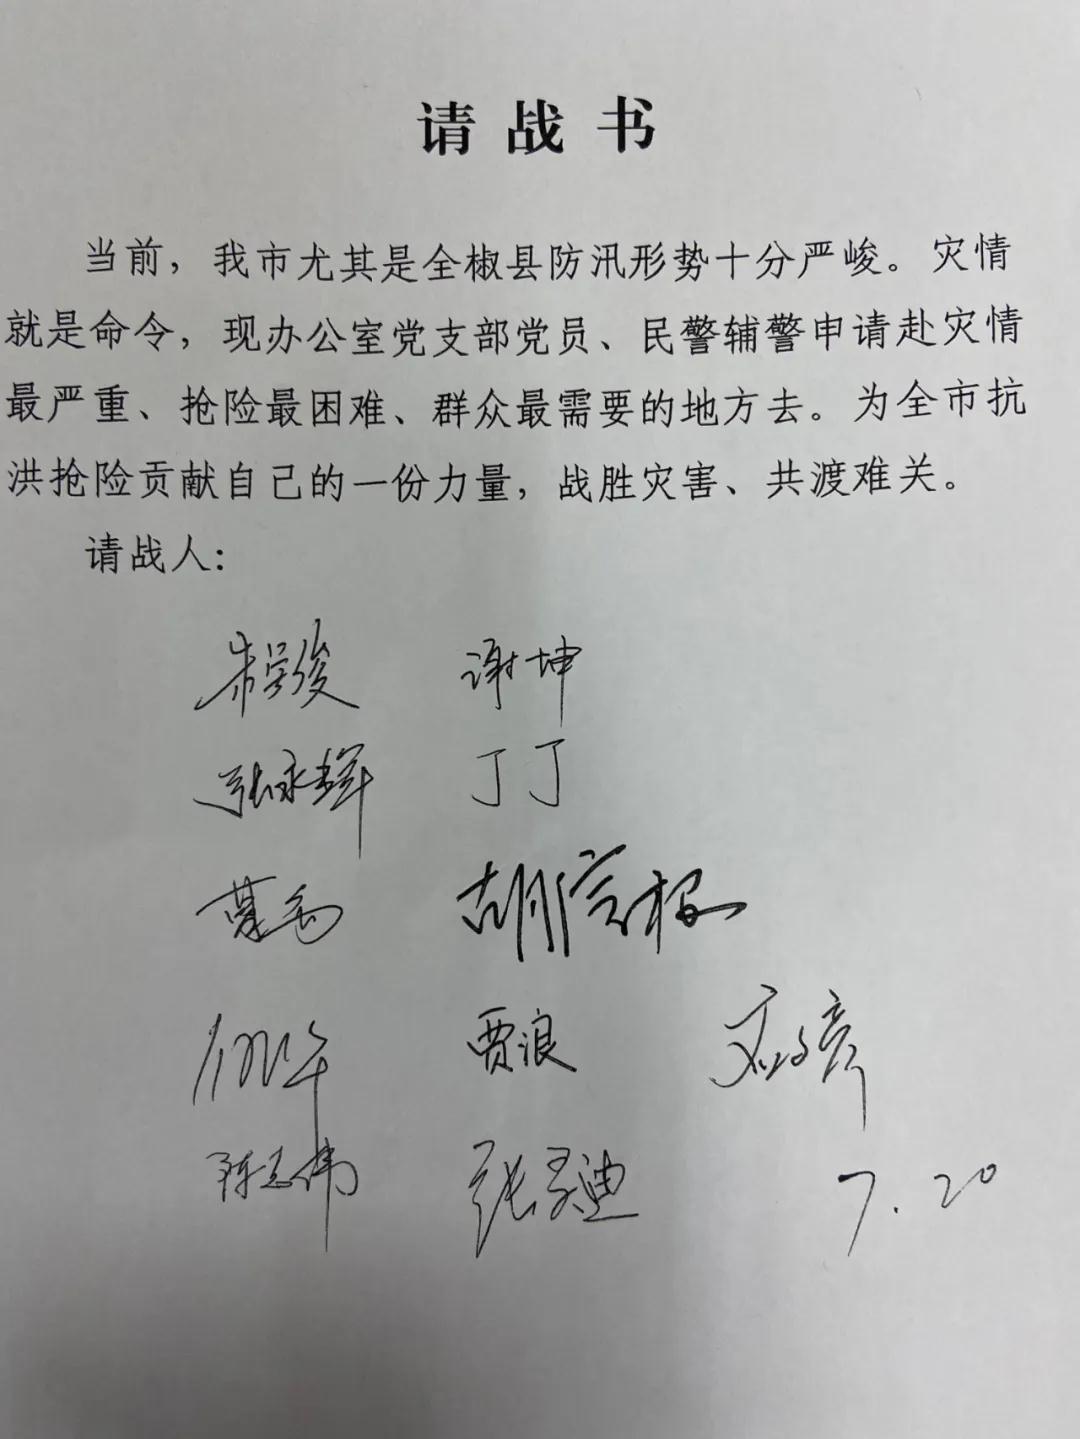 请战书
当前，我市尤其是全椒县防汛形势十分严峻。灾情
就是命令，现办公室党支部党员、民警辅警申请赴灾情
最严重、抢险最困难、群众最需要的地方去。为全市抗
洪抢险贡献自己的一份力量，战胜灾害、共渡难关。
请战人：
朱学俊 谢坤
张永辉 丁丁
胡
贾浪
陈志伟 张 迪 7.20